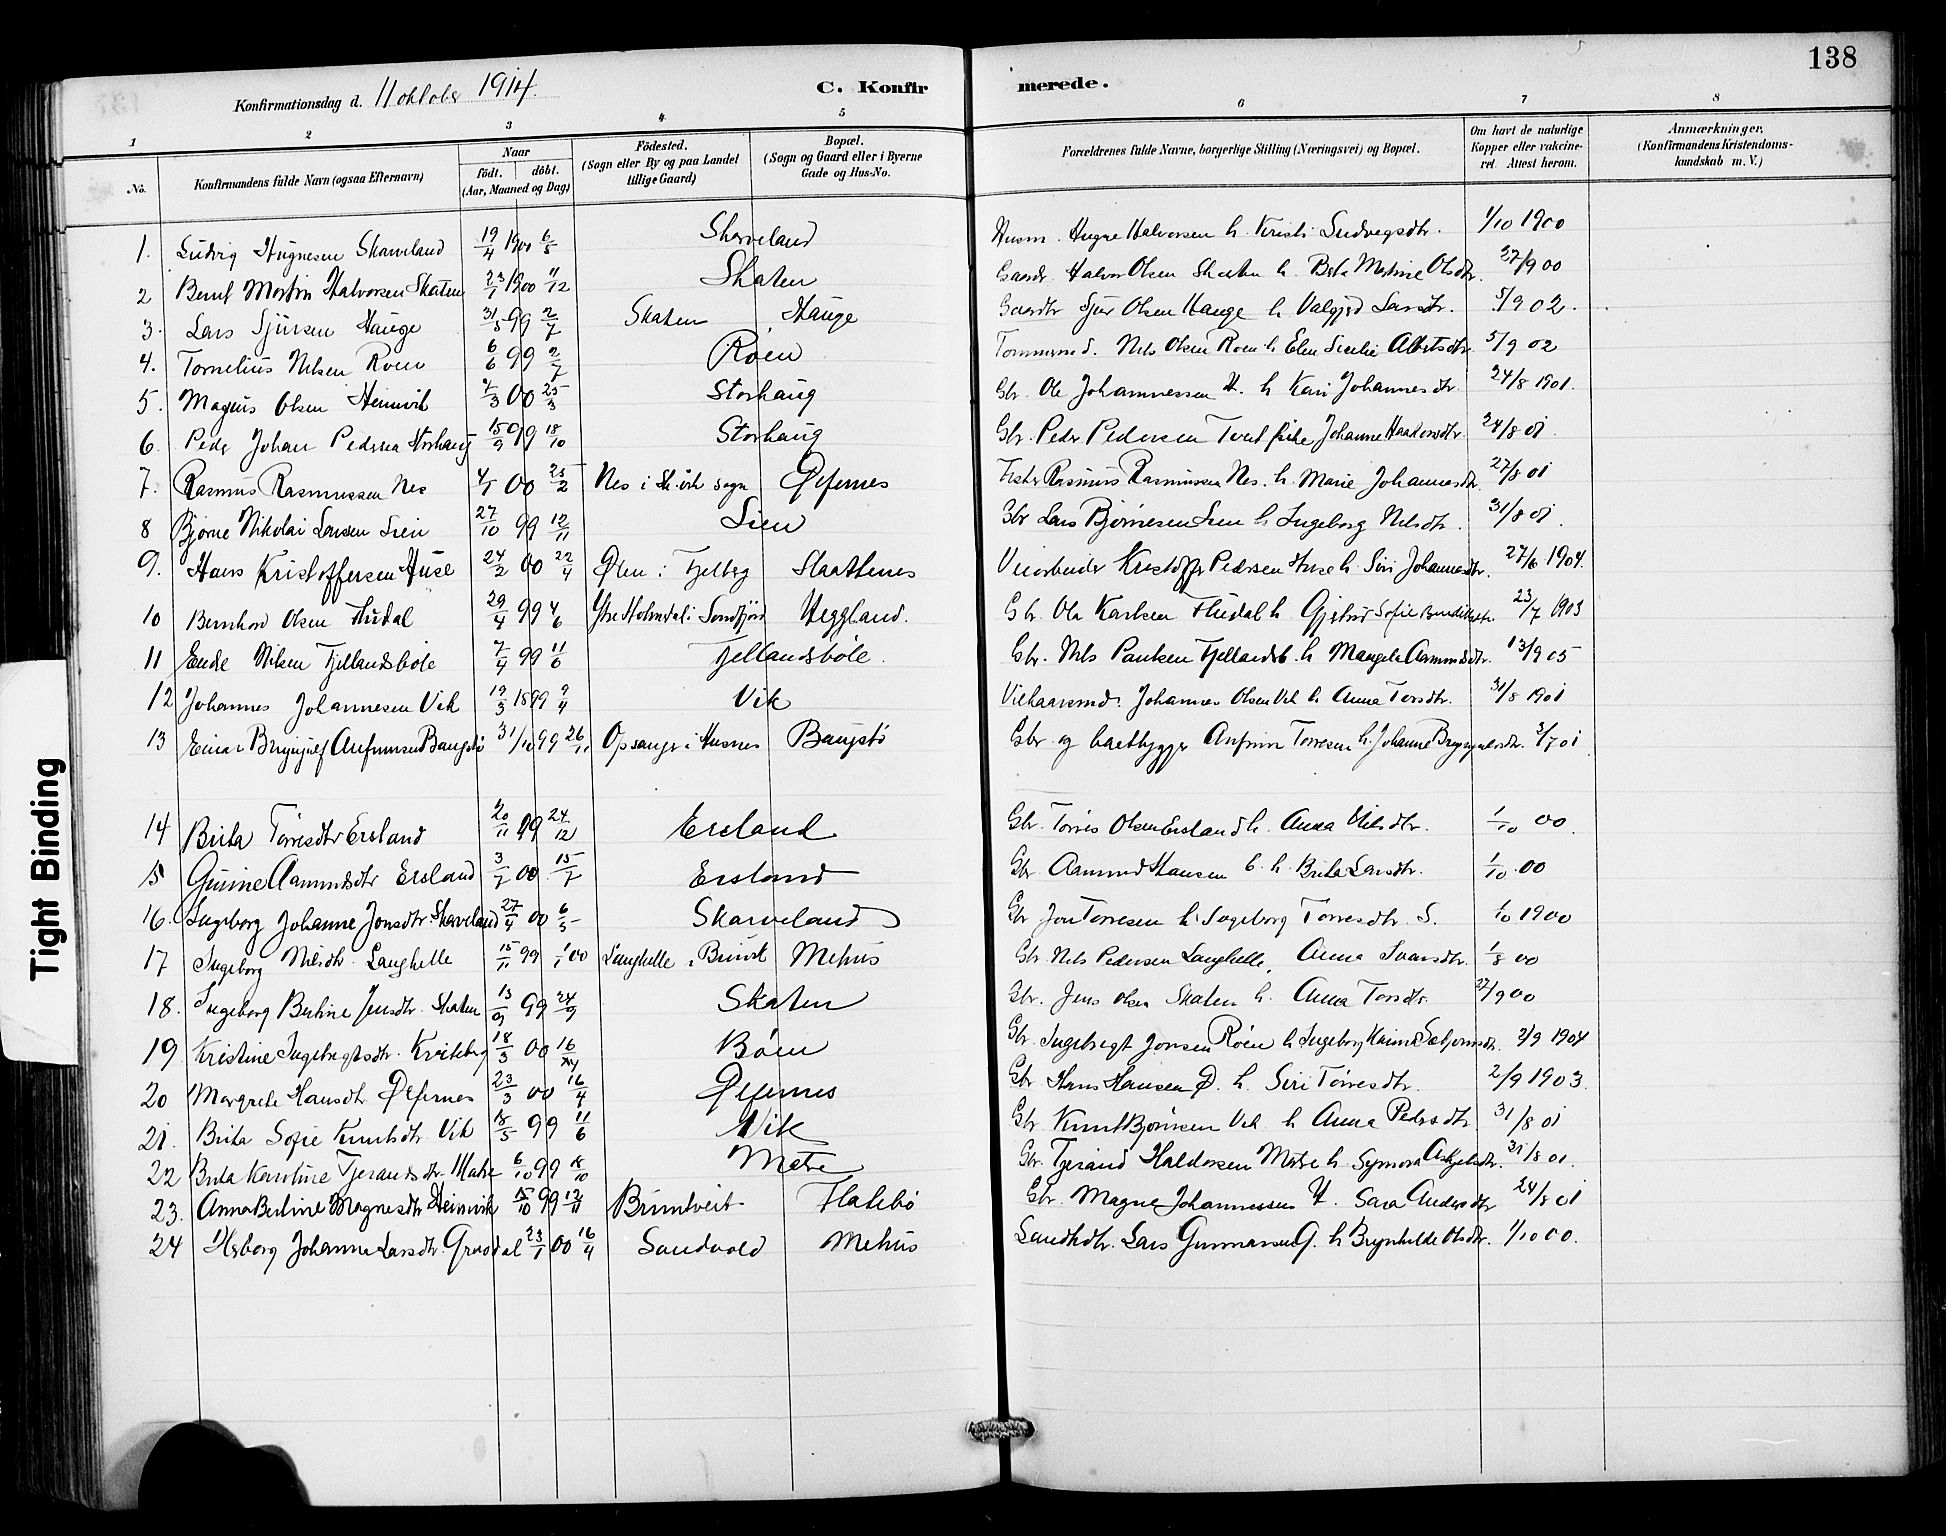 138
Konfirmationsdag d. 11 oktober 1914.
C. Konfirmerede.
1 2 3 4 5 6 7 8
No. Konfirmandens fulde Navn (ogsaa Efternavn) Naar födt. döbt. (Aar, Maaned og Dag) Födested. (Sogn eller By og paa Landet tillige Gaard) Bopæl. (Sogn og Gaard eller i Byerne Gade og Hus-No. Forældrenes fulde Navne, borgerlige Stilling (Næringsvei) og Bopæl. Om havt de naturlige Kopper eller vakcineret. Attest herom. Anmærkninger, (Konfirmandens Kristendomskundskab m. V.)
1. Ludvig Hugnesen Skarveland 19/4 1900 6/5 Skarveland Husm. Hugne Halvorsen h. Kristi Ludvegsdtr. 1/10 1900
2 Bernt Martin Halvorsen Skaten 23/1 1900 11/12 Skaten Gaardr. Halvor Olsen Skaten h. Martine Olsdtr. 27/9 00
3. Lars Sjursen Hauge 31/5 99 2/7 Skaten Hauge Gaardbr Sjur Olsen Hauge h. Larsdtr. 5/9 02.
4. Tornelius Nilsen Roen 6/6 99 2/7 Röen Tømmermd. Nils Olsen Roen h. Elen Albertsdtr. 5/9 02
5. Magnus Olsen Heinvik 00 25/3 Storhaug Gbr. Ole Johannessen H. h Kari Johannesdtr. 24/8 1901.
6. Peder Johan Pedersen Storhaug 15/9 99 18/10 Storhaug Gbr. Peder Pedersen Johanne 24/8 01.
7. Rasmus Rasmussen Nes 4/1 00 25/2 Nes i sogn Øfernes Rasmus Rasmussen Nes. h. Marie Johannesdtr. 27/8 01
8 Bjørne Nikolai Larsen Lien 27/10 99 12/11 Lien Gbr Lars Bjørnesen Lien h Ingeborg Nilsdtr. 31/8 01.
9. Hans Kristoffersen Huse 24/2 00 22/4 Ølen i Fjelberg Slaattenes Veiarbeider Kristoffer Pedersen Huse h. Siri Johannesdtr. 27/6 1904.
10 Bernhard Olsen Hudal 29/4 99 4/6 Ytre Holmedal i Søndfjord Heggland. Gbr. Ola Karlsen h Sofie 23/7 1903
11 Endre Nilsen Fjellandsbøle 7/4 99 11/6 Fjellandsböle. Gbr. Nils Paulsen Fjellandsb. h. Aamundsdtr. 13/9 05
12 Johannes Johannesen Vik 19/3 1899 9/4 Vik Johannes Olsen Vik h Anna Torsdtr. 31/8 1901
13 Einar Brynjulf Anfinnsen Baugstø 31/10 99 26/11 Opsanger i Husnes Baugstø Gbr. og baatbygger Anfinn Torresen h. Johanne 3/7 01
14 Brita Torresdtr Ersland 20/11 99 24/12 Ersland Gbr. Torres Olsen Ersland h. Anna Nilsdtr. 1/10 00.
15 Gurine Aamundsdtr Ersland 00 15/7 Ersland Gbr. Aamund Hansen E. h. Brita Larsdtr. 1/10 00
16. Ingeborg Johanne Jonsdtr. Skarveland 27/4 00 6/5 Skarveland Gbr Jon Torresen h. Ingeborg Torresdtr. S. 1/10 1900
17 Ingeborg Nilsdtr. Langhelle 15/11 99 1/1 00 Langhelle i Mehus Gbr. Nils Pedersen Langhelle, Anna Ivarsdtr. 1/8 00
18. Ingeborg Berline Jensdtr. Skaten 13/9 99 24/9 Skaten Gbr. Jens Olsen Skaten h. Anna Torsdtr. 27/9 00
19 Kristine Ingebregtsdtr. Kviteberg 18/3 00 16/ Böen Gbr. Ingebregt Jonsen Röen h Ingeborg 2/9 1904
20 Margrete Hansdtr Øfernes 23/3 00 16/4 Øfernes Gbr Hans Hansen Ø. h. Siri Torresdtr. 2/9 1903.
21. Brita Sofie Knutsdtr Vik 18/5 99 11/6 Vik Gbr Knut Bjørnsen Vik h Anna Pedersdtr 31/8 01
22 Brita Karoline Tjerandsdtr Matre 6/10 99 18/10 Matre Gbr. Tjerand Haldorsen Matre h 31/8 01.
23. Anna Berline Magnesdtr Heinvik 15/10 99 12/11 Brimtveit Flatebø Gbr. Magne Johannessen H. Sara Andersdtr 24/8 01
24 Herborg Johanne Larsdtr. Grødal 23/1 00 16/4 Sandvold Mehus Lars Gunnarsen G. h Brynhilde Olsdtr. 1/10 00.
Tight Binding